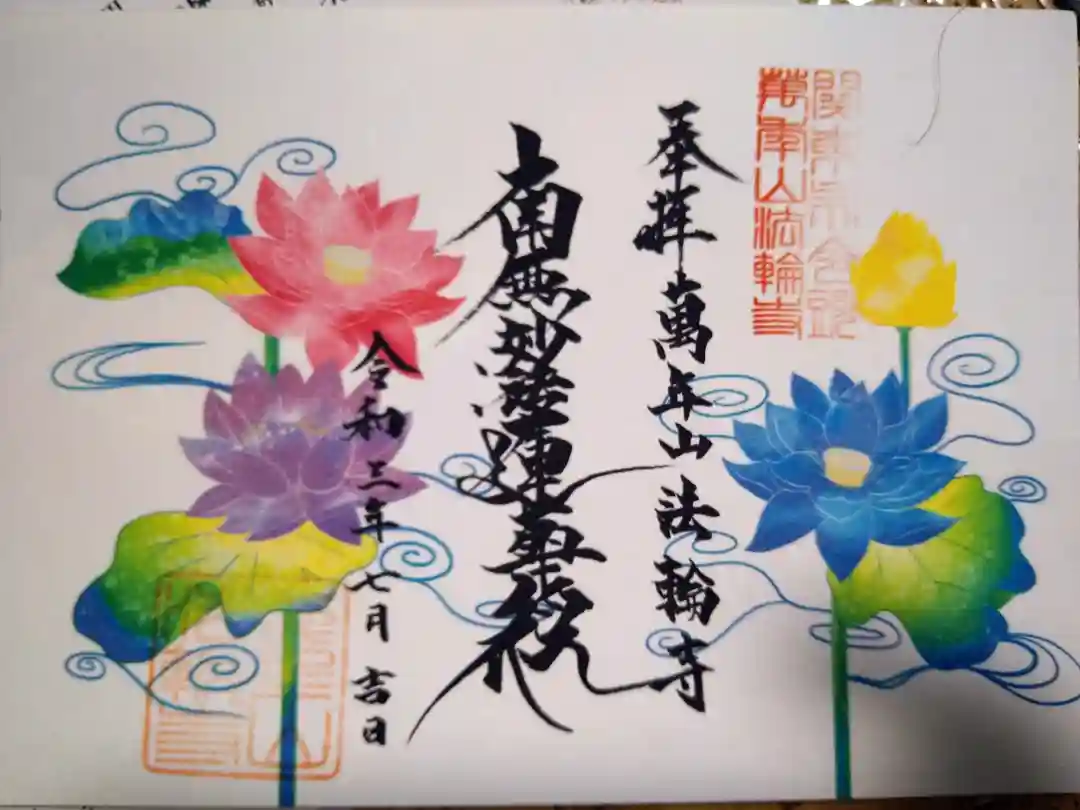 萬年山法輪寺
奉拝 萬年山 法輪寺
南無妙法蓮華経
令和三年七月吉日